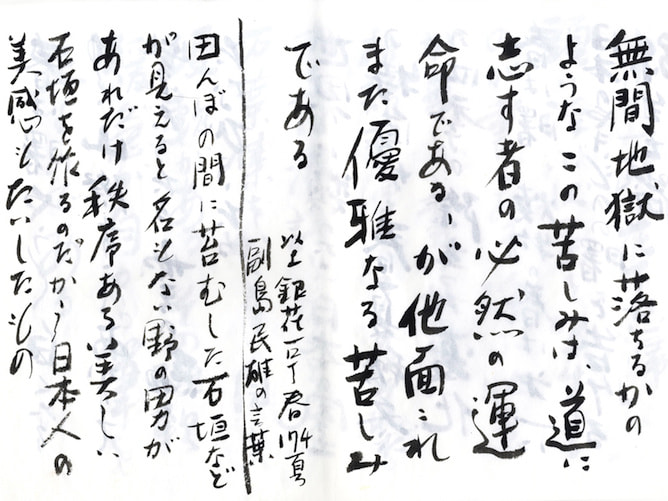 無間地獄に落ちるかの
ような この苦しみは、道に
志す者の必然の運
命である、が他面これ
また優雅なる苦しみ
である
以上 銀花 春 174頁
副島民雄の言葉
田んぼの間に苔むした石垣など
が見えると 名もない野の男が
あれだけ秩序ある美しい
石垣を作るのだから日本人の
美感もたいしたもの